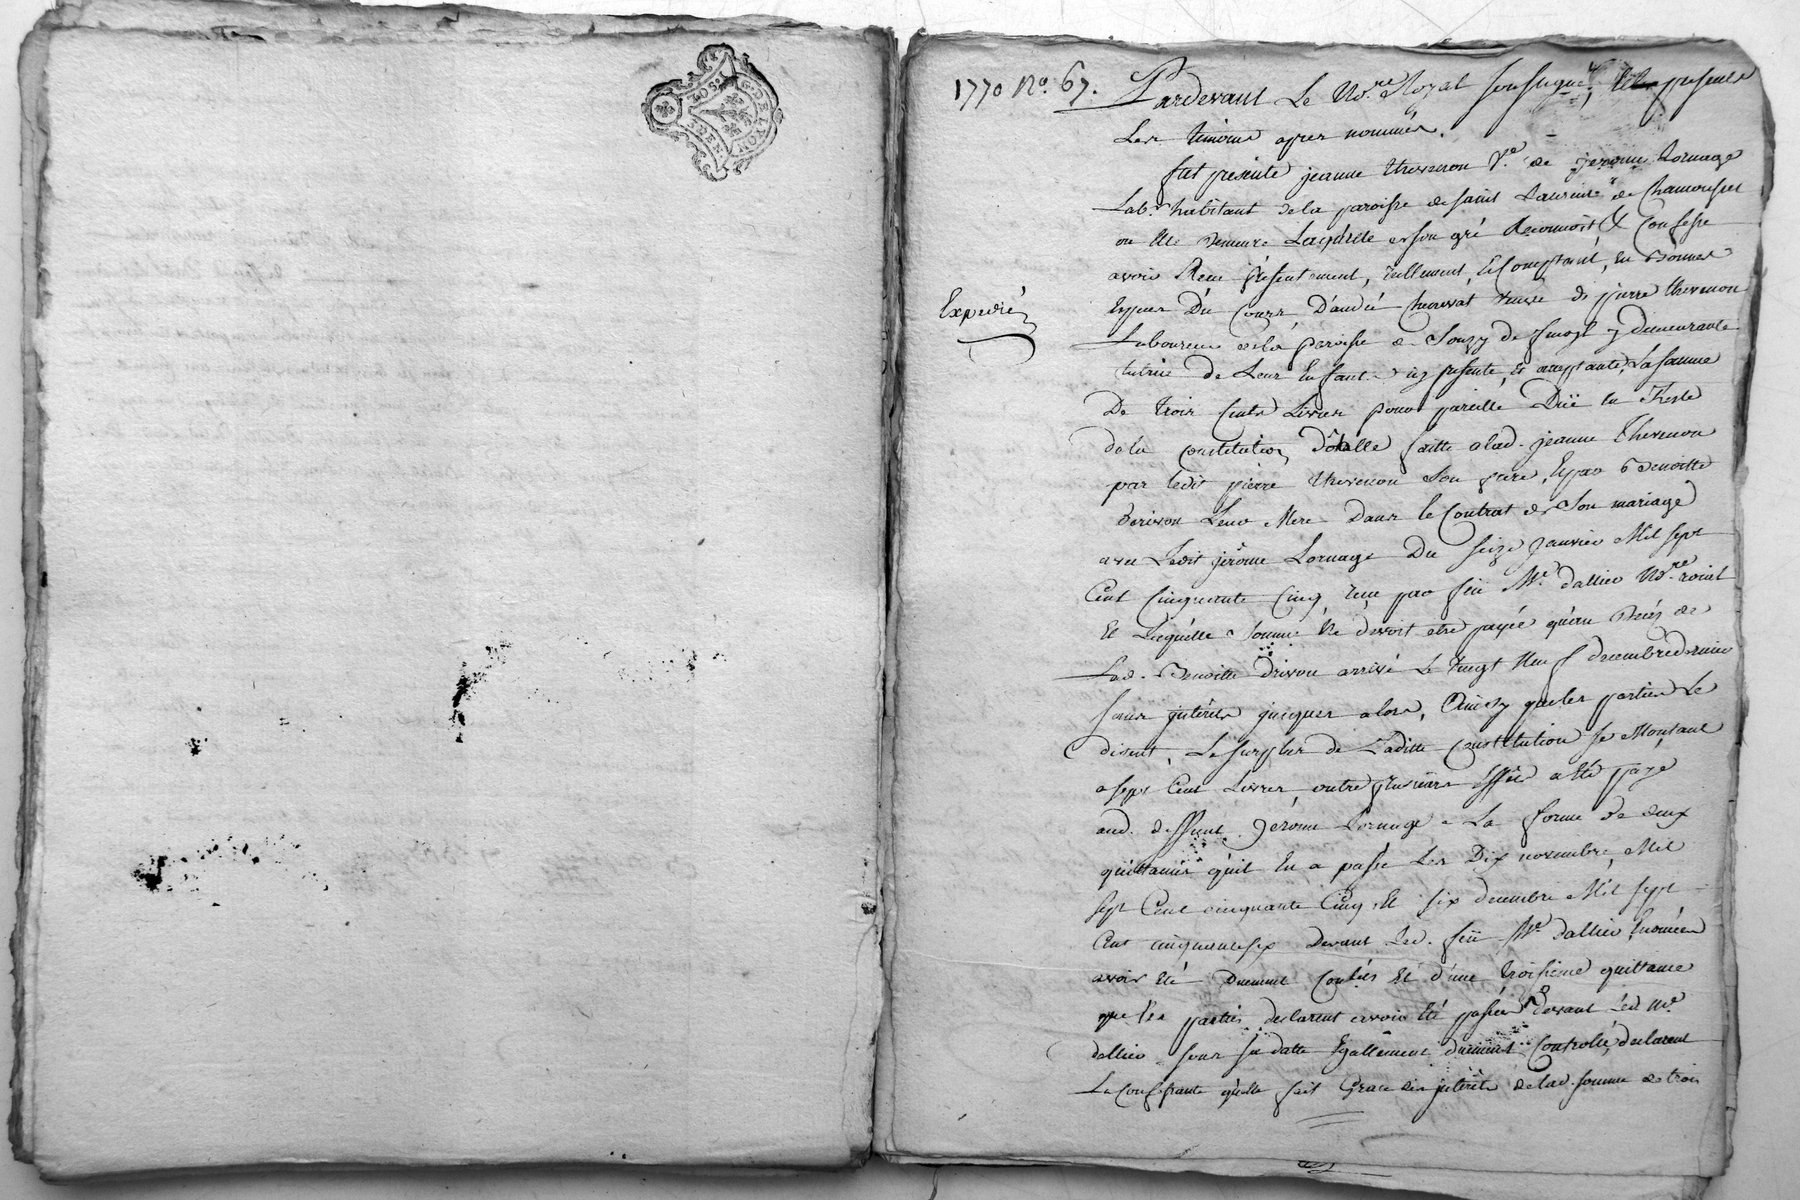 G. DE LYON
1770 No. 67.
Pardevant Le No.re Royal soussigné, et presents
Les temoins apres nommés.
fut presente jeanne thevenon V.e de jerome Lornage
Lab.r habitant de la paroisse de saint Laurent de Chamousset
ou elle demeure Laquelle de son gré Reconnoit & Confesse
avoir Receu presentement, réellement, et Comptant, en Bonnes
Especes Du Cours D'andrée veuve de pierre thevenon
Laboureur de la paroisse de Souzy y demeurante
tutrice de Leur Enfants icy presente, et acceptante, La somme
De trois Cents Livres pour pareille Düe en Reste
de la Constitution Dotalle faitte a lad. jeanne thevenon
par ledit pierre thevenon son frere, Et par Benoitte
Leur Mere Dans le Contrat de Son mariage
avec Ledit jérôme Lornage Du seize janvier Mil sept
Cent Cinquante Cinq reçu par feu M.e dallier No.re royal
Et Laquelle Somme Ne devoit etre payée qu'au Déces de
Lad. Benoitte arrivé Le vingt Neuf decembre dernier
sans jnterets jusques alors, Ainsy que les parties Le
disent, Le surplus de Laditte Constitution se Montant
a sept Cent Livres, outre plusieurs Effets a été payé
aud. deffunt Jerome Lornage a La forme de deux
quittances qu'il En a passé Les Dix novembre, Mil
sept Cent cinquante Cinq, Et six decembre Mil sept
Cent cinquante six Devant Led. feu M.e dallier, Enoncées
avoir été Duement Conlées Et d'une troisieme quittance
que les parties declarent avoir été passée Devant led. M.e
dallier sous sa datte Egallement duement Controllé, declarant
La Confessante qu'elle fait Grace des jnterets de lad. somme de trois
Expedié